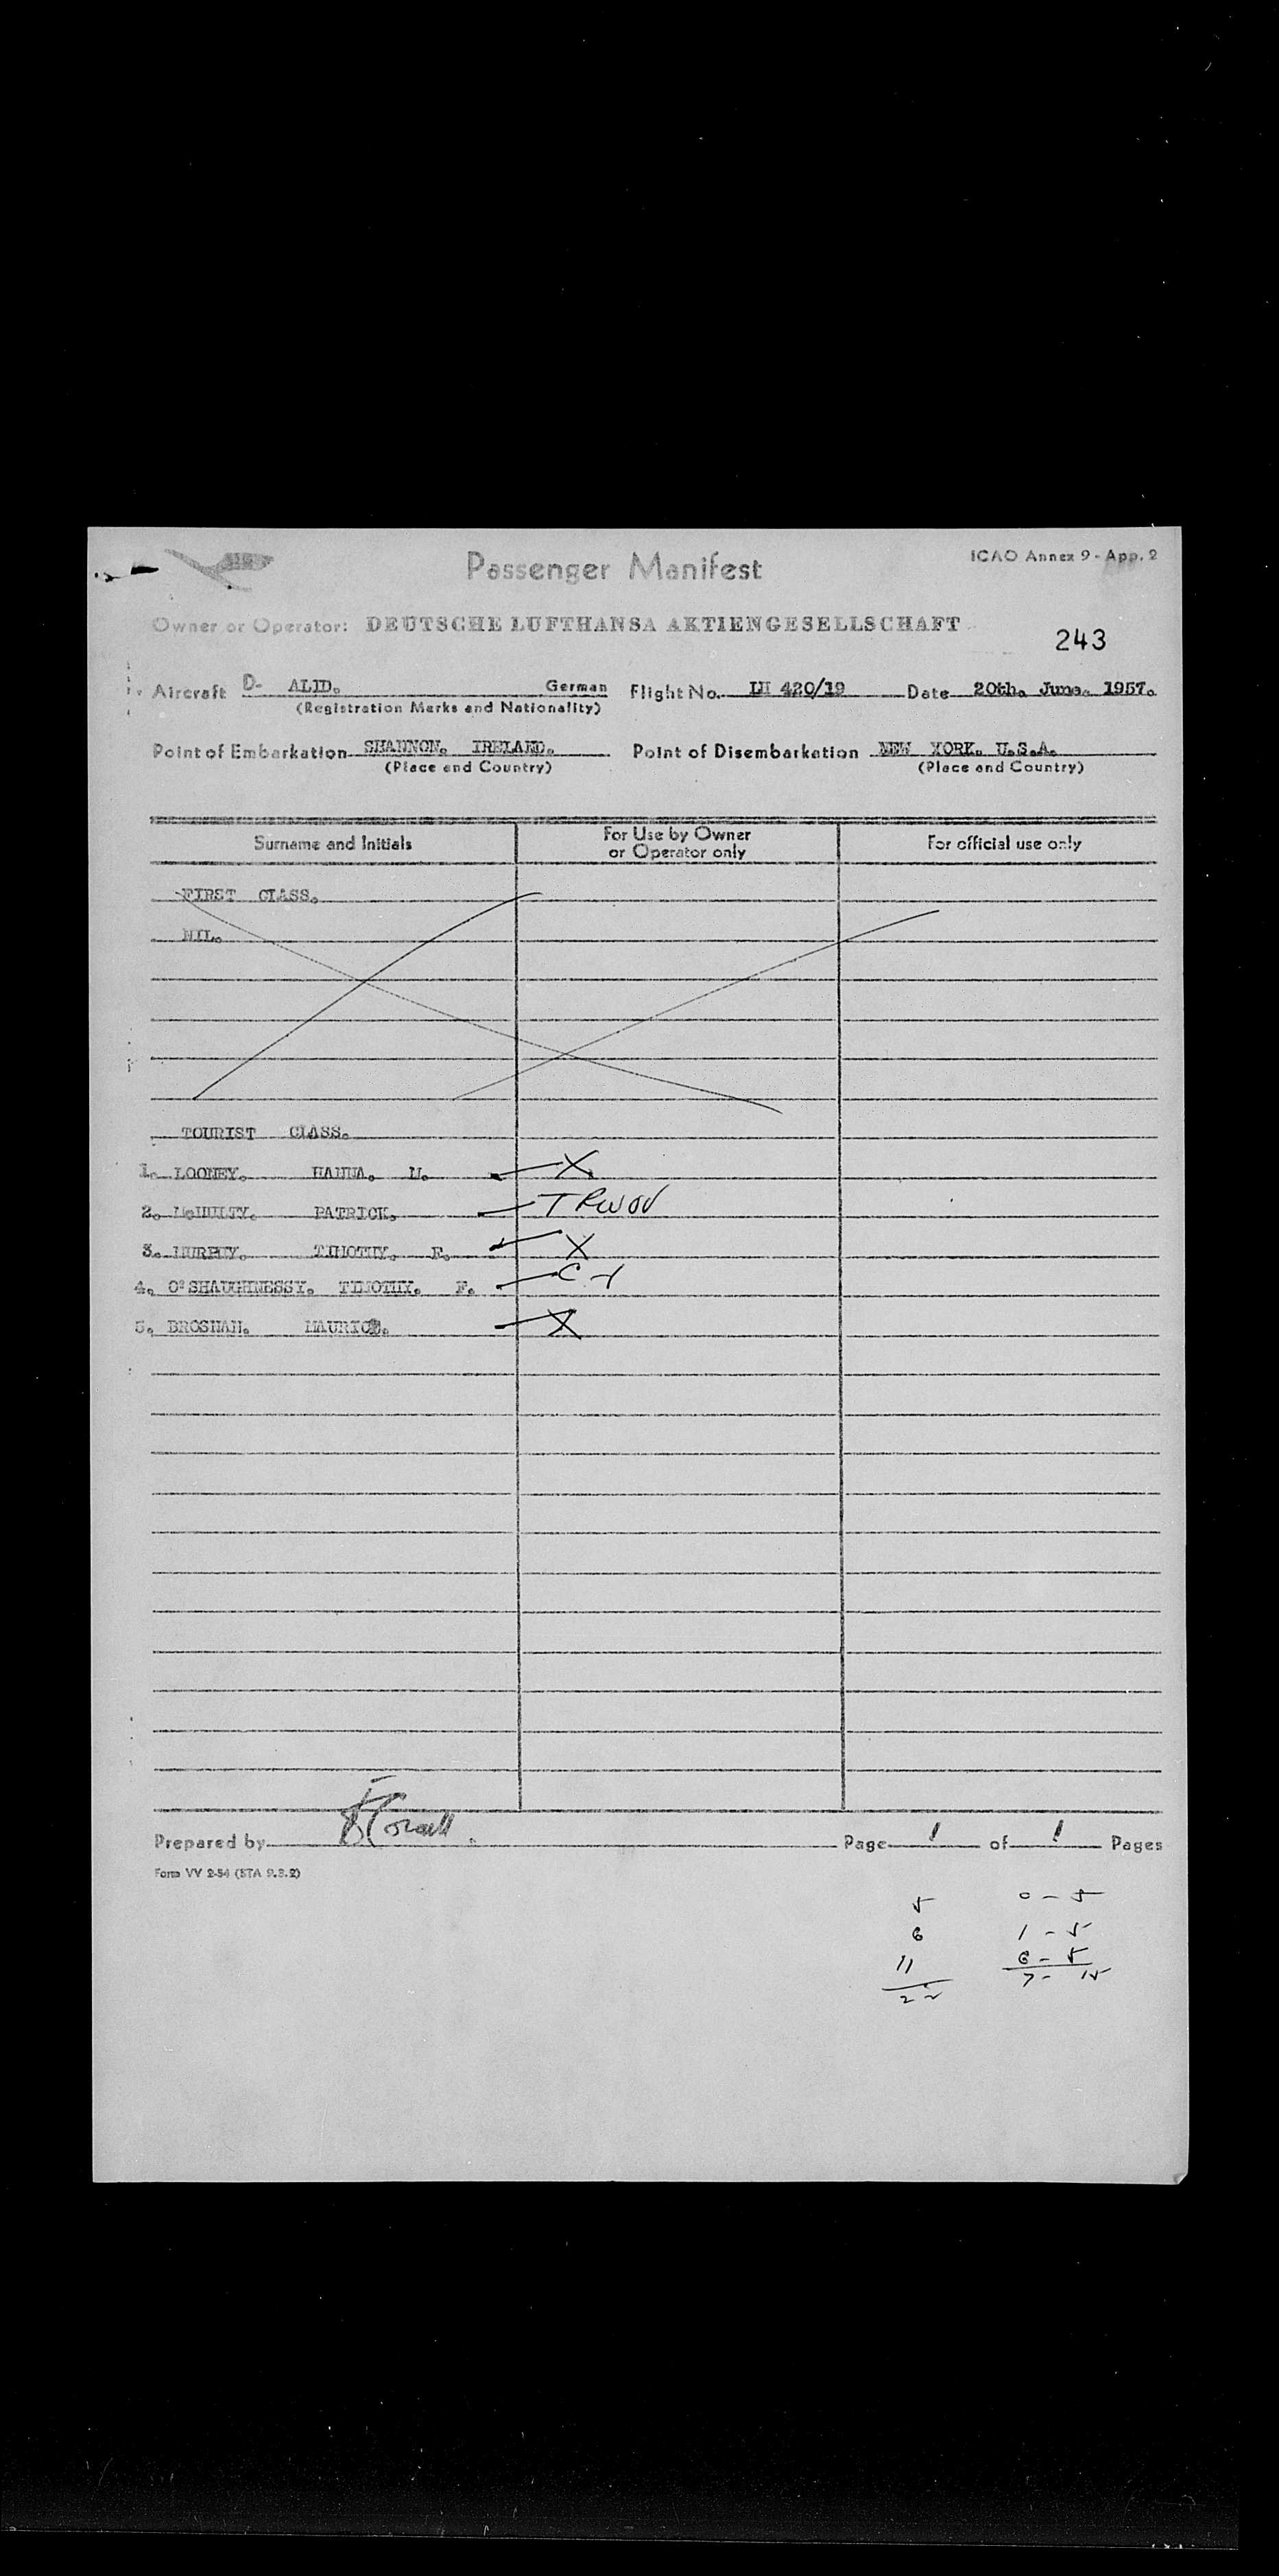 Passenger Manifest
ICAO Annex 9 - App. 2
Owner or Operator: DEUTSCHE LUFTHANSA AKTIENGESELLSCHAFT
243
Aircraft D- ALID. German Flight No. LH 420/19 Date 20th. June. 1957.
(Registration Marks and Nationality)
Point of Embarkation SHANNON. IRELAND. Point of Disembarkation NEW YORK. U.S.A.
(Place and Country) (Place and Country)
Surname and Initials For Use by Owner or Operator only For official use only
FIRST CLASS.
NIL.
TOURIST CLASS.
1. LOONEY. HANNA. M. X
2. McNULTY. PATRICK.
3. MURPHY. TIMOTHY. F. X
4. O'SHAUGHNESSY. TIMOTHY. F. C-1
5. BROSNAN. MAURICE. X
Prepared by Page 1 of 1 Pages
Form VV 2-54 (STA 9.3.2)
5 0 - 5
6 1 - 5
11 6 - 5
22 7 - 15